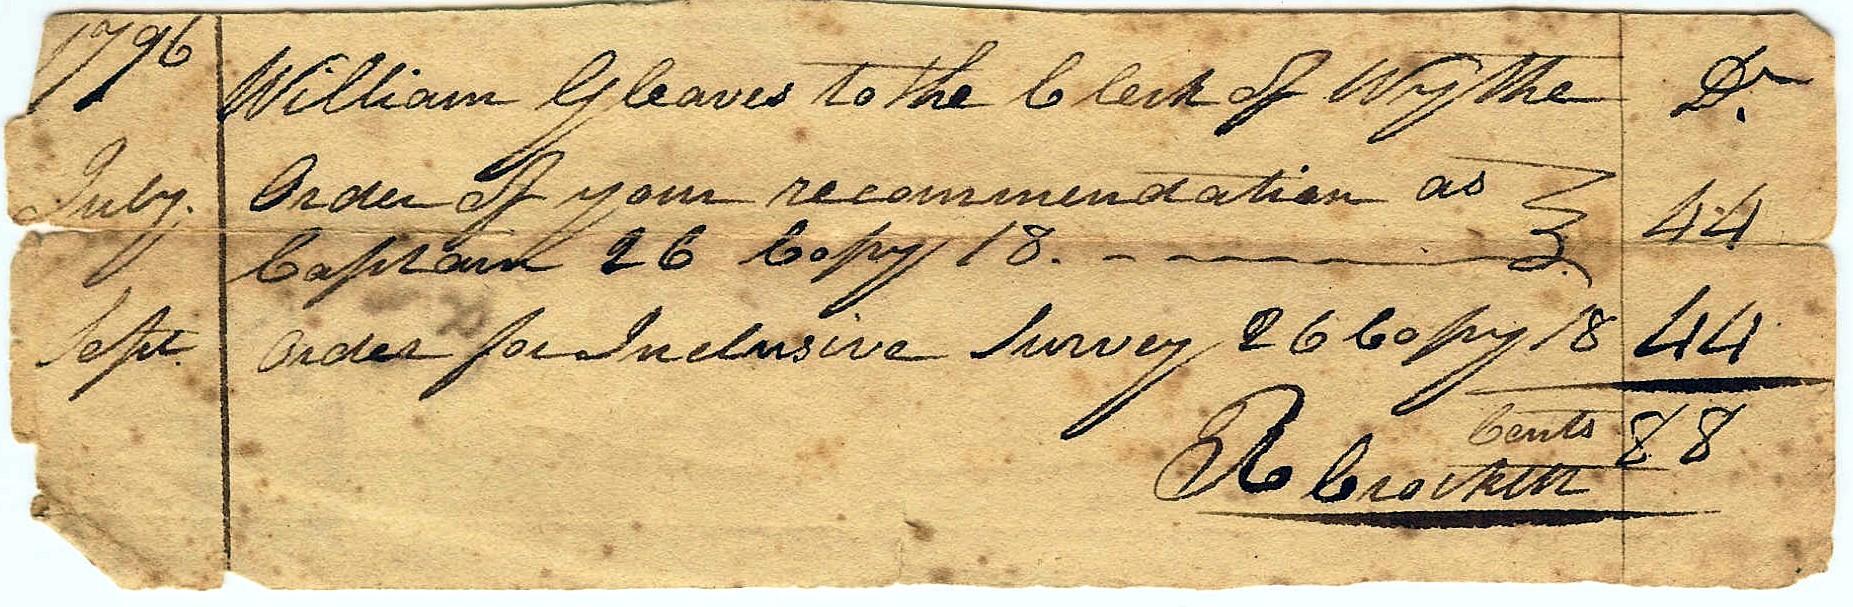 1796 William Gleaves to the Clerk of Wythe Dr.
July. Order of your recommendation as
Captain 26 Copy 18. 44
Sept. Order for Inclusive Survey 26 Copy 18 44
Cents 88
R Crockett